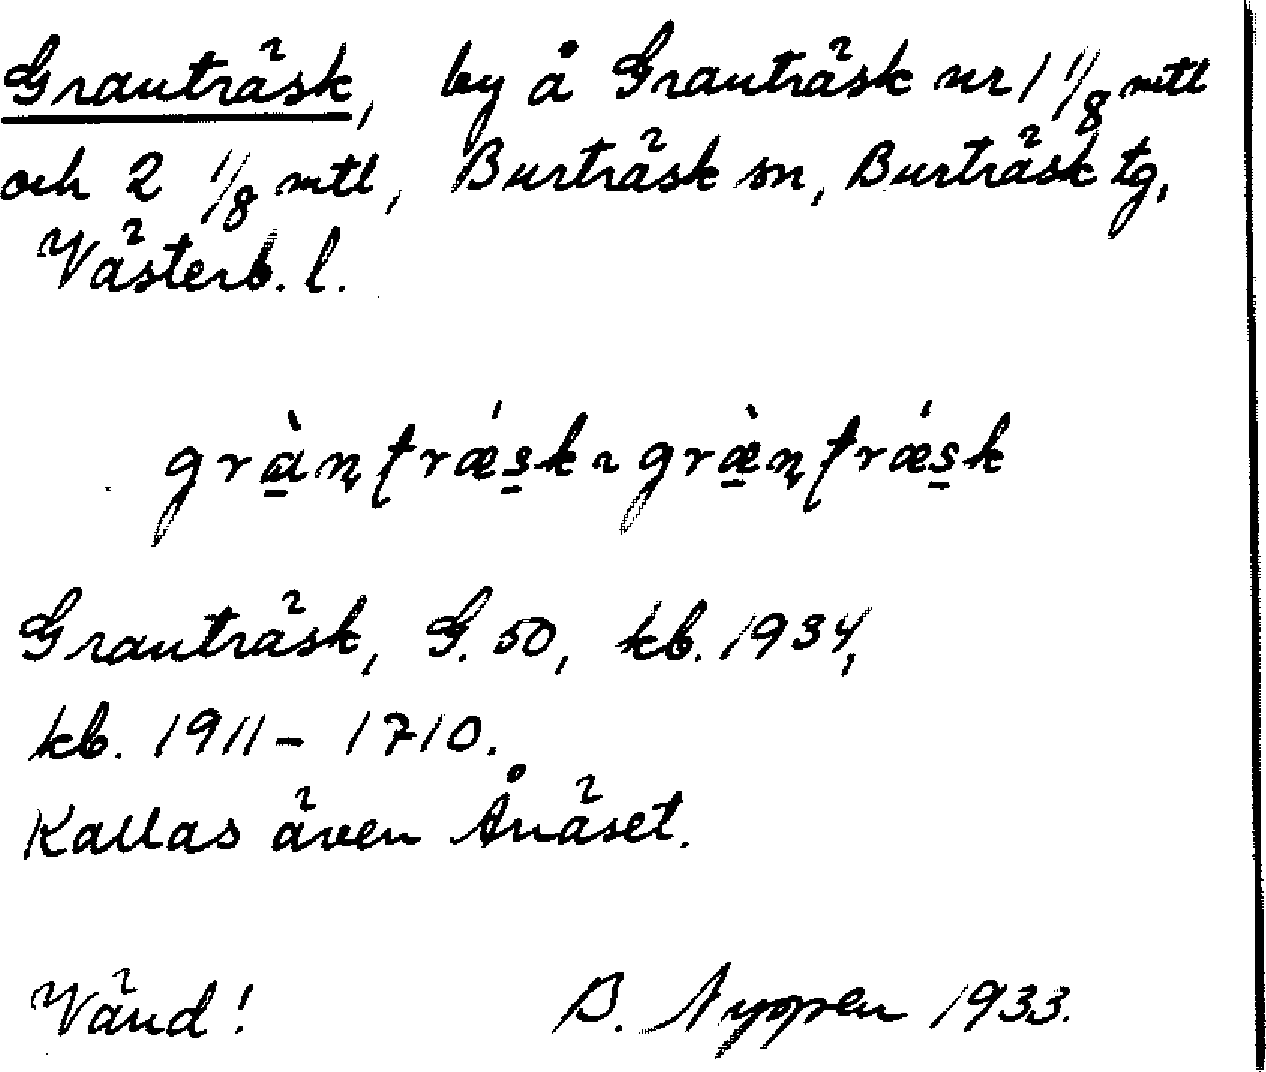 Granträsk, by å Granträsk nr 1 1/8 mtl
och 2 1/8 mtl, Burträsk sn, Burträsk tg,
Västerb. l.
Granträsk, G. 50, kb. 1934,
kb. 1911 – 1710.
Kallas även Ånäset.
Vänd! B. Nygren 1933.